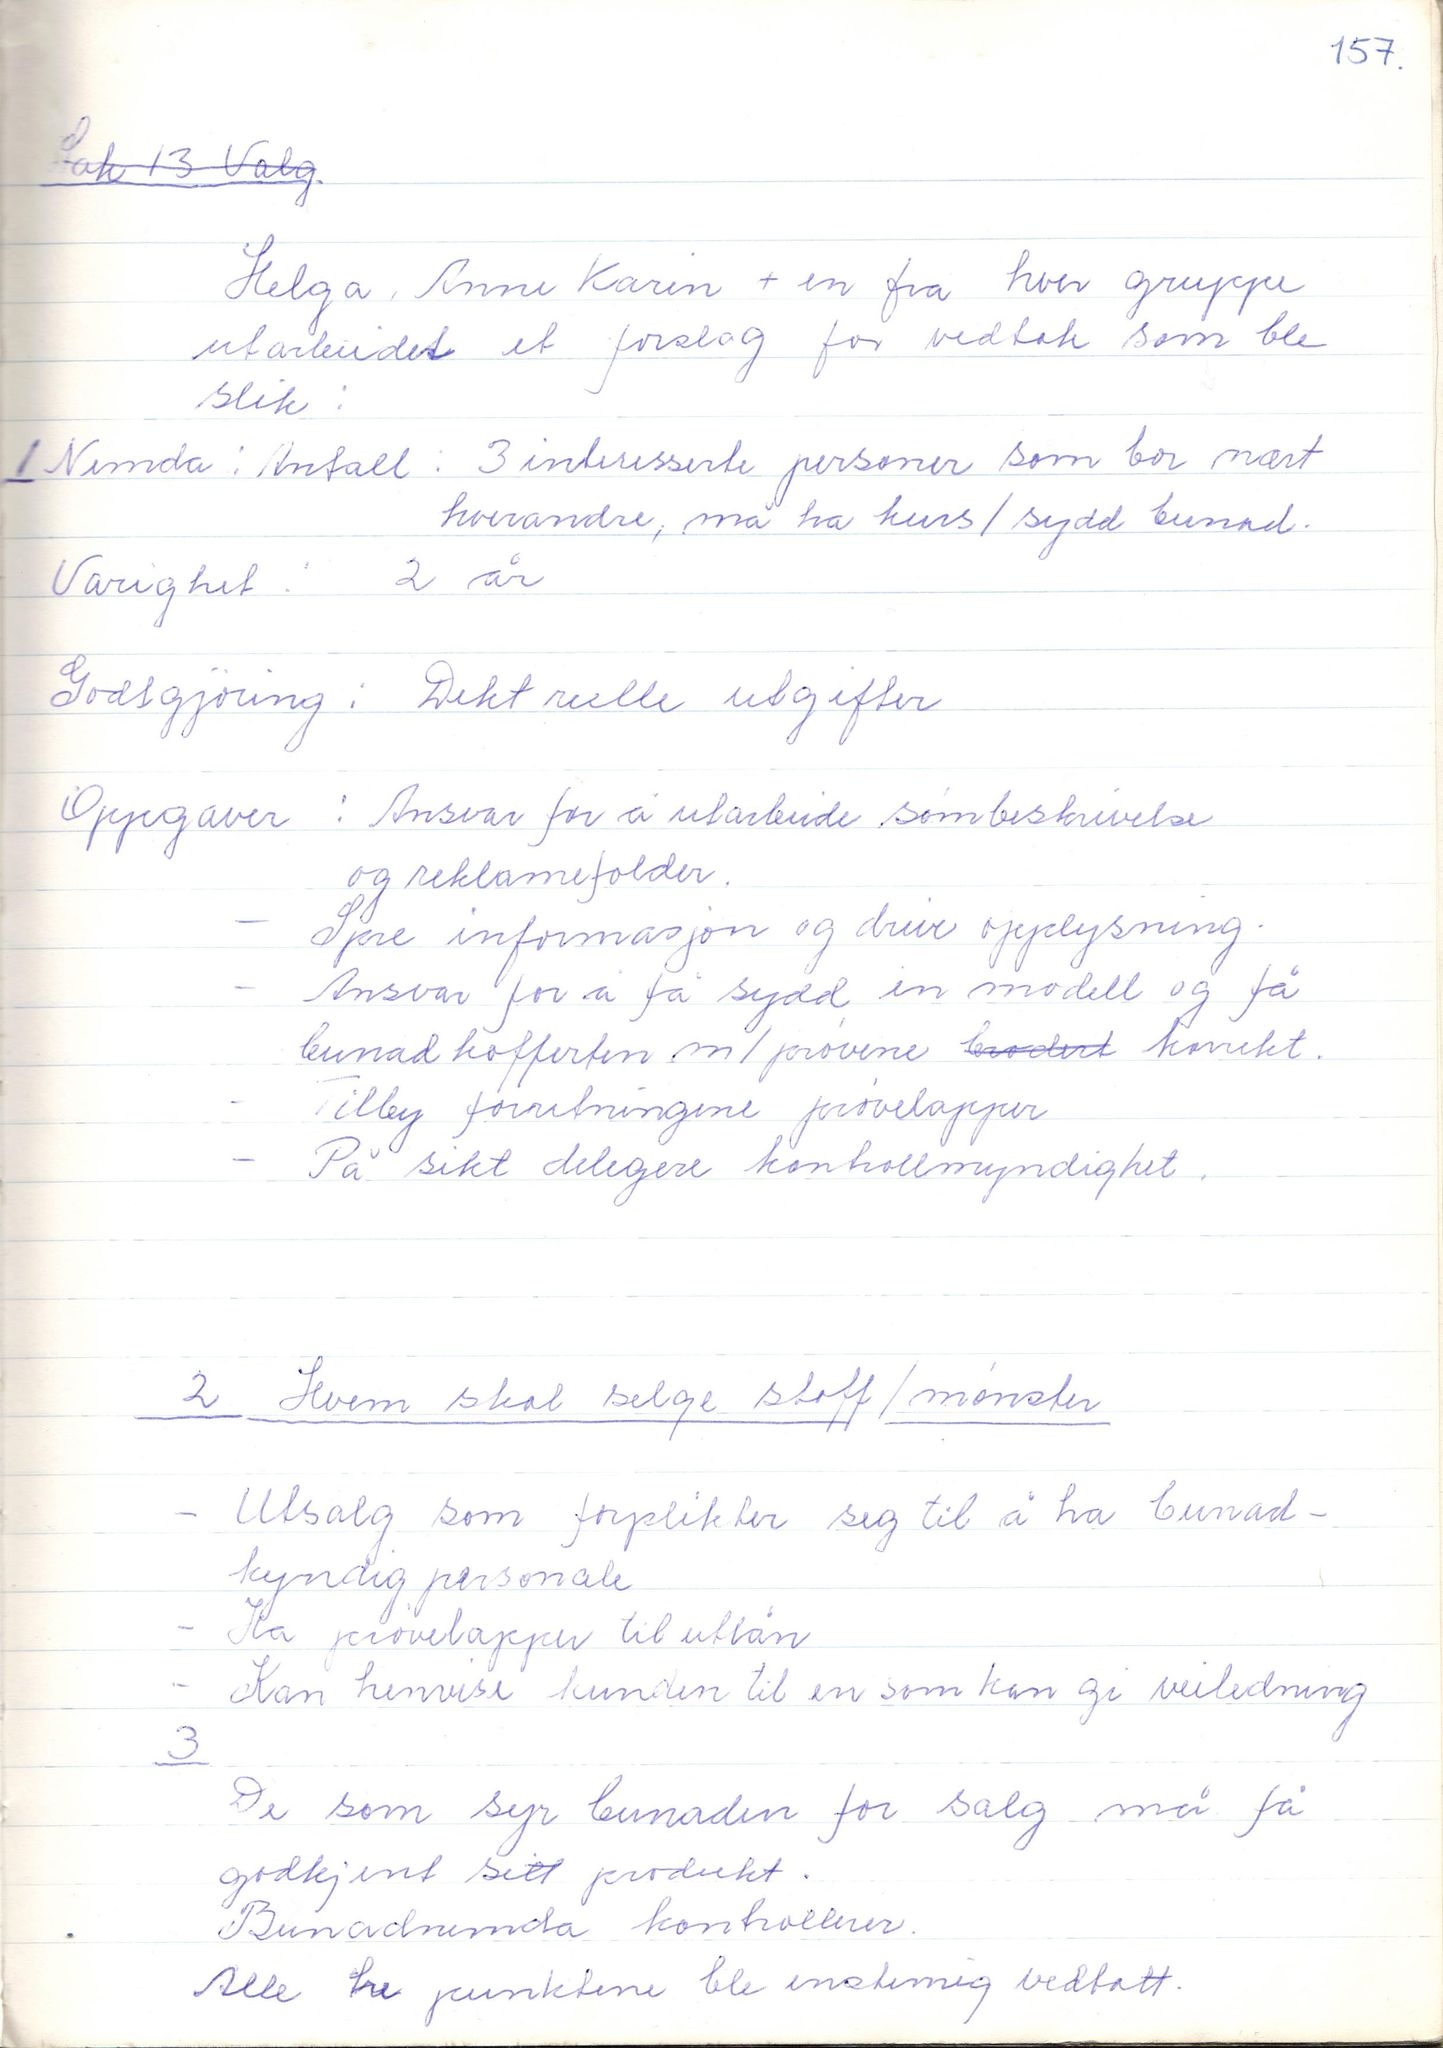 157.
Sak 13 Valg.
Helga, Anne Karin + en fra hver gruppe
utarbeidet et forslag for vedtak som ble
slik :
1 Nemda : Antall : 3 interesserte personer som bor nært
hverandre, må ha kurs / sydd bunad.
Varighet : 2 år
Godtgjöring : Dekt reelle utgifter
Oppgaver : Ansvar for å utarbeide sömbeskrivelse
og reklamefolder.
- Spre informasjon og drive opplysning.
- Ansvar for å få sydd en modell og få
bunadkofferten m/ prövene brodert korrekt.
- Tilby forretningene prövelapper
- På sikt delegere kontrollmyndighet.
2 Hvem skal selge stoff / mönster
- Utsalg som forplikter seg til å ha bunad-
kyndig personale
- Ha prövelapper til utlån
- Kan henvise kunden til en som kan gi veiledning
3
De som syr bunaden for salg må få
godkjent sitt produkt.
Bunadnemda kontrollerer.
Alle tre punktene ble enstemig vedtatt.